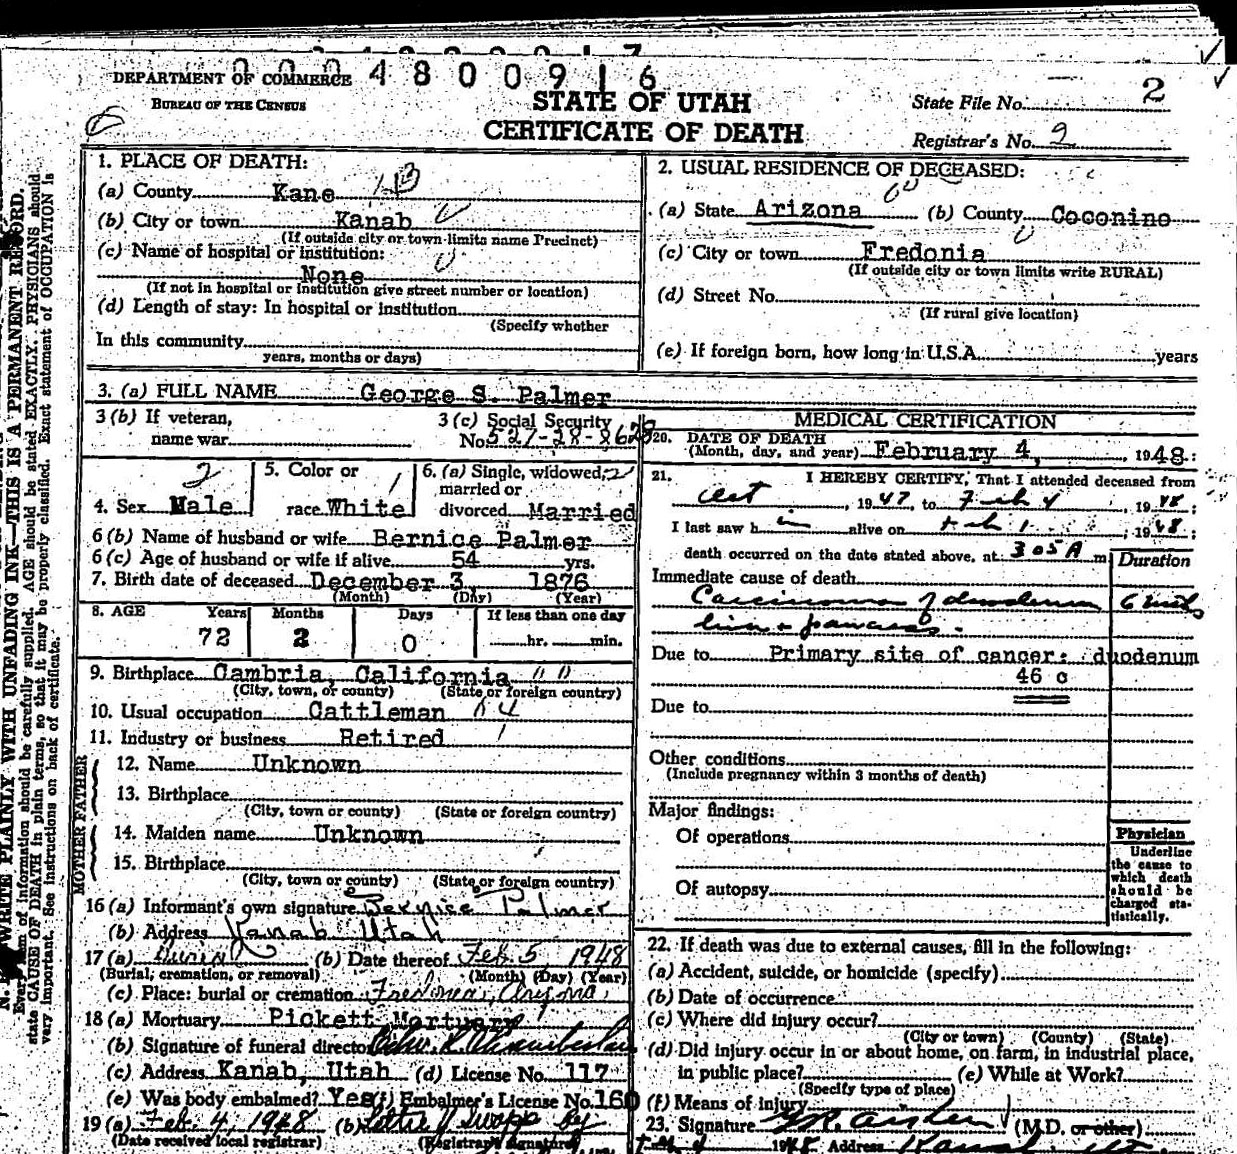 DEPARTMENT OF COMMERCE
BUREAU OF THE CENSUS
0004800916
STATE OF UTAH
CERTIFICATE OF DEATH
State File No. 2
Registrar's No. 9
1. PLACE OF DEATH:
(a) County Kane
(b) City or town Kanab
(If outside city or town limits name Precinct)
(c) Name of hospital or institution:
None
(If not in hospital or institution give street number or location)
(d) Length of stay: In hospital or institution
(Specify whether
In this community
years, months or days)
2. USUAL RESIDENCE OF DECEASED:
(a) State Arizona (b) County Coconino
(c) City or town Fredonia
(If outside city or town limits write RURAL)
(d) Street No.
(If rural give location)
(e) If foreign born, how long in U.S.A. years
3. (a) FULL NAME George S. Palmer
3 (b) If veteran,
name war
3 (c) Social Security
No. 527-28-8623
4. Sex Male
5. Color or
race White
6. (a) Single, widowed,
married or
divorced Married
6 (b) Name of husband or wife Bernice Palmer
6 (c) Age of husband or wife if alive 54 yrs.
7. Birth date of deceased December 3 1876
(Month) (Day) (Year)
8. AGE Years Months Days If less than one day
72 2 0 hr. min.
9. Birthplace Cambria, California
(City, town, or county) (State or foreign country)
10. Usual occupation Cattleman
11. Industry or business Retired
FATHER
12. Name Unknown
13. Birthplace
(City, town or county) (State or foreign country)
MOTHER
14. Maiden name Unknown
15. Birthplace
(City, town or county) (State or foreign country)
16 (a) Informant's own signature Bernice Palmer
(b) Address Kanab Utah
17 (a) Burial (b) Date thereof Feb. 5 1948
(Burial, cremation, or removal) (Month) (Day) (Year)
(c) Place: burial or cremation Fredonia, Arizona
18 (a) Mortuary Pickett Mortuary
(b) Signature of funeral director Chamberlain
(c) Address Kanab, Utah (d) License No. 117
(e) Was body embalmed? Yes (f) Embalmer's License No. 160
19 (a) Feb. 4, 1948 (b) Swapp by
(Date received local registrar) (Registrar's signature)
MEDICAL CERTIFICATION
20. DATE OF DEATH
(Month, day, and year) February 4, 1948
21. I HEREBY CERTIFY, That I attended deceased from
Oct , 1947, to Feb 4 , 1948 ;
I last saw him alive on Feb 1 , 1948 ;
death occurred on the date stated above, at 3 05 A m
Duration
Immediate cause of death
Carcinoma of duodenum 6 mths
liver + pancreas.
Due to Primary site of cancer: duodenum
46 c
Due to
Other conditions
(Include pregnancy within 3 months of death)
Major findings:
Of operations
Of autopsy
Physician
Underline
the cause to
which death
should be
charged sta-
tistically.
22. If death was due to external causes, fill in the following:
(a) Accident, suicide, or homicide (specify)
(b) Date of occurrence
(c) Where did injury occur?
(City or town) (County) (State)
(d) Did injury occur in or about home, on farm, in industrial place,
in public place? (e) While at Work?
(Specify type of place)
(f) Means of injury
23. Signature (M.D. or other)
1948 Address Kanab Ut.
WRITE PLAINLY WITH UNFADING INK—THIS IS A PERMANENT RECORD.
Every item of information should be carefully supplied. AGE should be stated EXACTLY. PHYSICIANS should
state CAUSE OF DEATH in plain terms, so that it may be properly classified. Exact statement of OCCUPATION is
very important. See instructions on back of certificate.